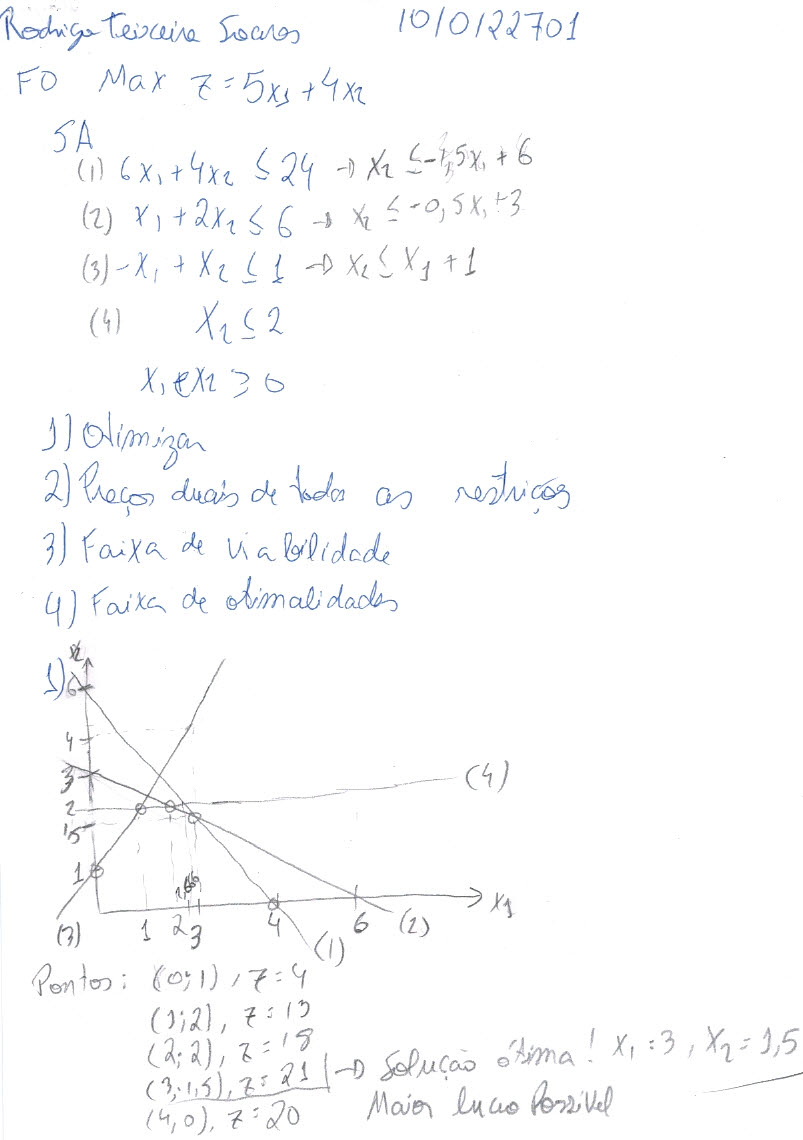 Rodrigo Teixeira Soares 10/0122701
FO Max z = 5x1 + 4x2
SA
(1) 6x1 + 4x2 ≤ 24 → x2 ≤ -1,5x1 + 6
(2) x1 + 2x2 ≤ 6 → x2 ≤ -0,5x1 + 3
(3) -x1 + x2 ≤ 1 → x2 ≤ x1 + 1
(4) x2 ≤ 2
x1 e x2 ≥ 0
1) Otimizar
2) Preços duais de todas as restrições
3) Faixa de viabilidade
4) Faixa de otimalidades
1)
x2
6
4
3
2
1,5
1
(4)
(3) 1 2 3 4 6 (2) x1
(1)
Pontos: (0;1), z = 4
(1;2), z = 13
(2;2), z = 18
(3;1,5), z = 21 → Solução ótima! x1 = 3, x2 = 1,5
(4,0), z = 20 Maior lucro Possível